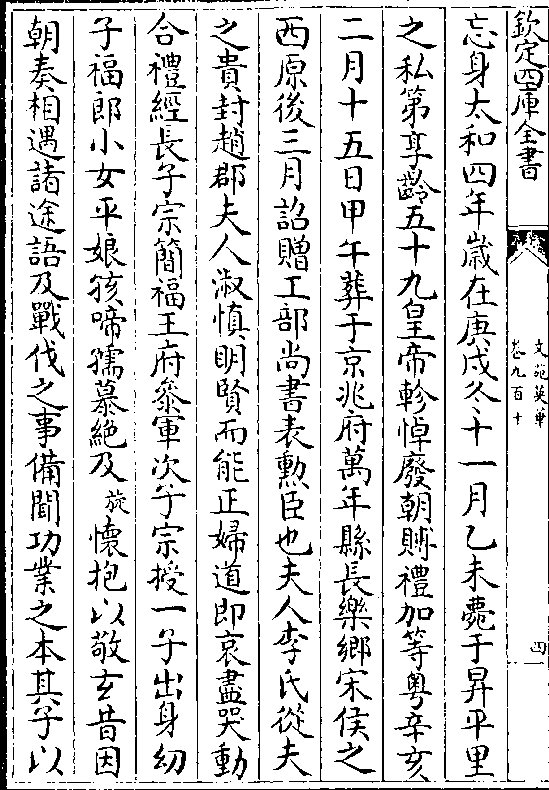 欽定四庫全書
文苑英華
卷九百十
四
忘身太和四年歲在庚戌冬十一月乙未薨于昇平里
之私第享齡五十九皇帝軫悼廢朝賵禮加等粤辛亥
二月十五日甲午葬于京兆府萬年縣長樂鄉宋侯之
西原後三月詔贈工部尚書表勲臣也夫人李氏從夫
之貴封趙郡夫人淑慎明賢而能正婦道即哀盡哭動
合禮經長子宗簡福王府叅軍次子宗授一子出身幼
子福郎小女平娘孩啼孺慕絶及旋懷抱以敬玄昔因
朝奏相遇諸途語及戰伐之事備聞功業之本其子以